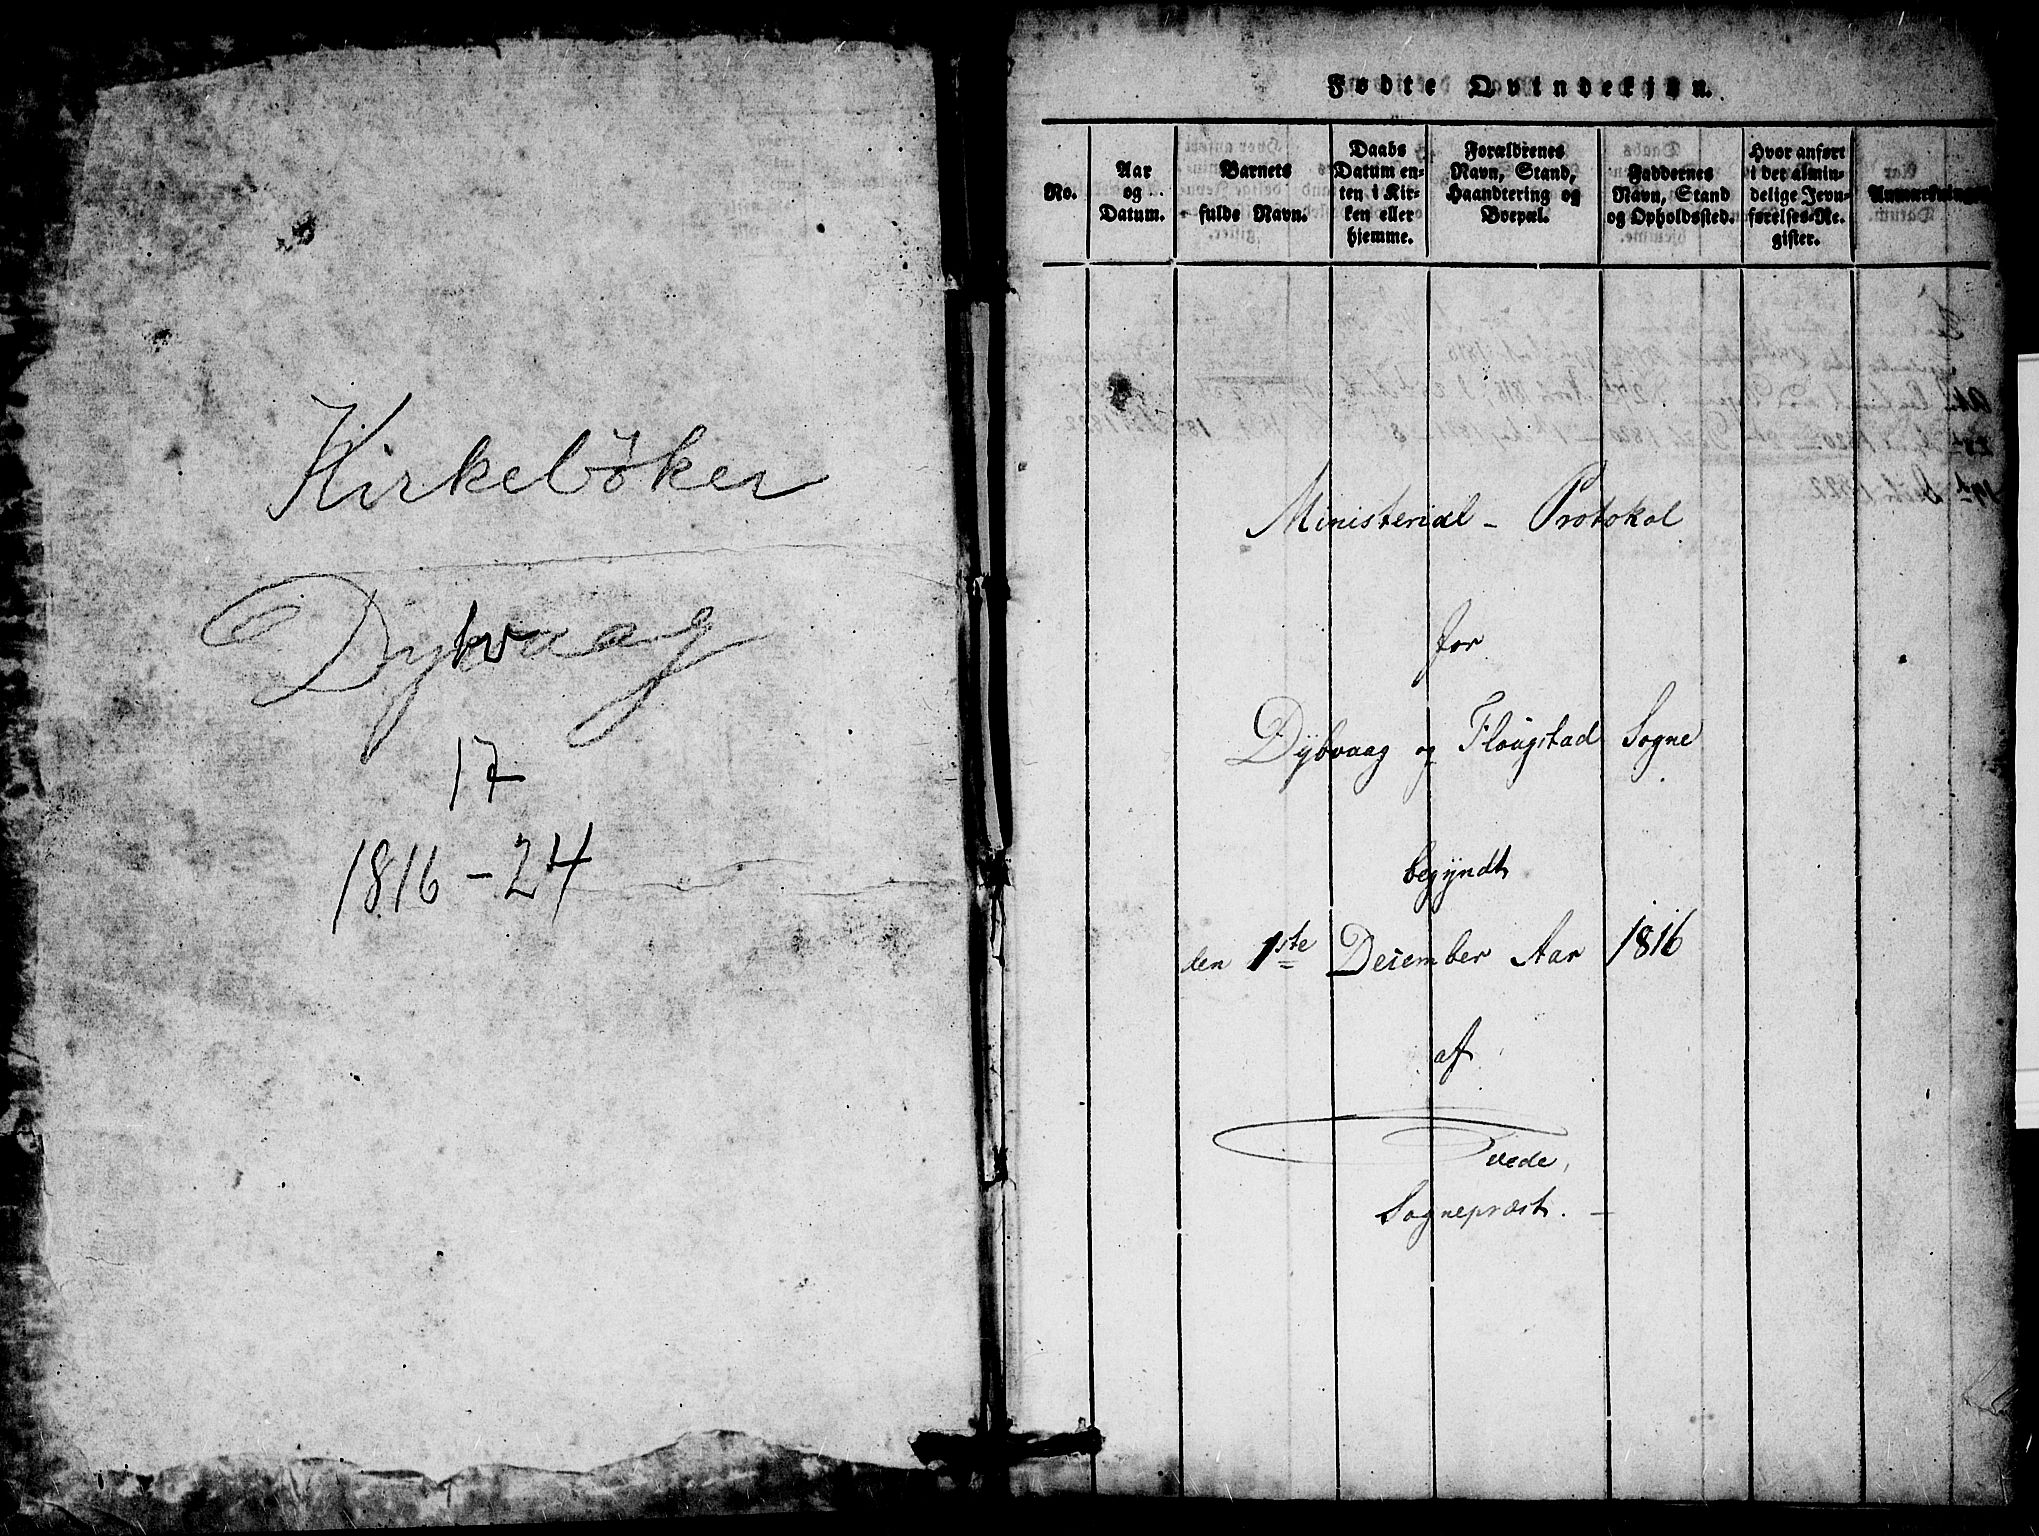 Kirkebőker
Dybvaag
17
1816-24
Fødte Qvindekjøn.
No.
Aar
og
Datum.
Barnets
fulde Navn.
Daabs
Datum en-
ten i Kir-
ken eller
hjemme.
Forældrenes
Navn, Stand,
Haandtering og
Boepæl.
Faddernes
Navn, Stand
og Opholdssted.
Hvor anført
i det almin-
delige Jevn-
førelses-Re-
gister.
Anmærkninger
Ministerial - Protokol
for
Dybvaag og Flougstad Sogne
begyndt
den 1ste December Aar 1816
af
Tvede,
Sognepræst. -